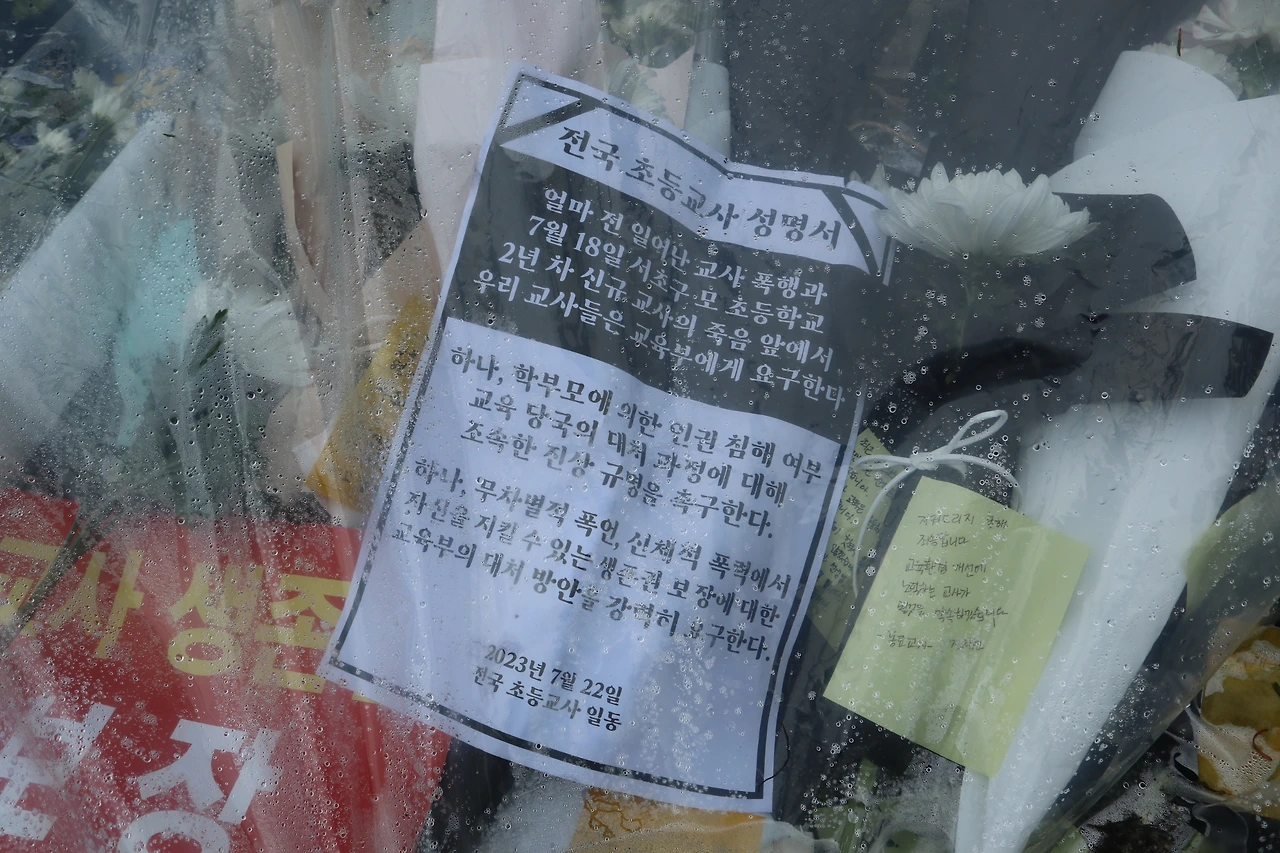 전국 초등교사 성명서
얼마 전 일어난 교사 폭행과
7월 18일 서초구 모 초등학교
2년 차 신규 교사의 죽음 앞에서
우리 교사들은 교육부에게 요구한다
하나, 학부모에 의한 인권 침해 여부
교육 당국의 대처 과정에 대해
조속한 진상 규명을 촉구한다.
하나, 무차별적 폭언, 신체적 폭력에서
자신을 지킬 수 있는 생존권 보장에 대한
교육부의 대처 방안을 강력히 요구한다.
2023년 7월 22일
전국 초등교사 일동
교사 생존
장
지켜드리지 못해
죄송합니다
교육환경 개선에
노력하는 교사가
동료교사